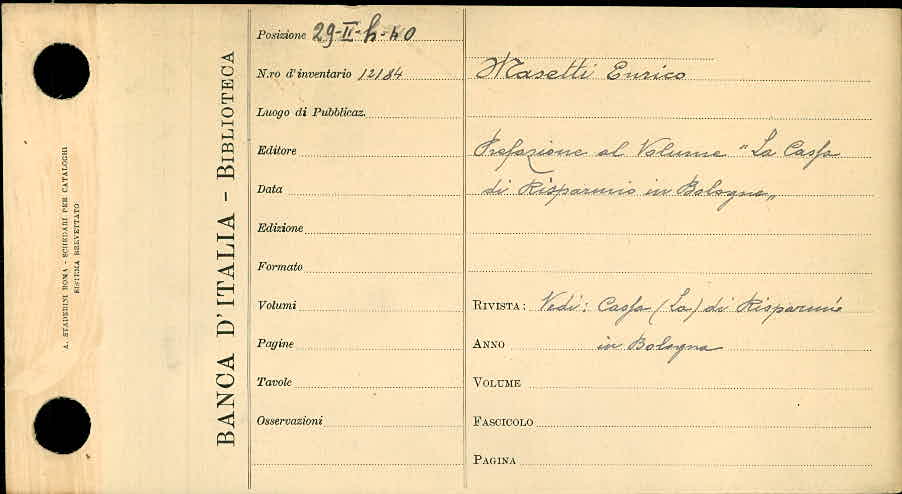 A. STADERINI ROMA - SCHEDARI PER CATALOGHI
SISTEMA BREVETTATO
BANCA D'ITALIA - BIBLIOTECA
Posizione 29-II-h-40
N.ro d'inventario 12184
Luogo di Pubblicaz.
Editore
Data
Edizione
Formato
Volumi
Pagine
Tavole
Osservazioni
Masetti Enrico
Prefazione al Volume "La Cassa
di Risparmio in Bologna„
RIVISTA: Vedi: Cassa (La) di Risparmio
ANNO in Bologna
VOLUME
FASCICOLO
PAGINA